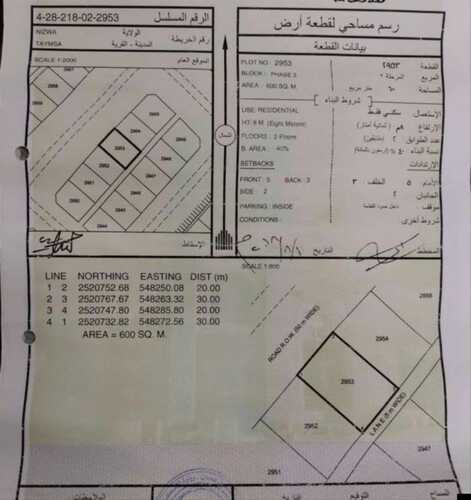 4-28-218-02-2953 الرقم المسلسل
NIZWA الولاية
TAYMSA المدينة - القرية
رقم الخريطة
SCALE 1:2000 الموقع العام
2955
2954
2953
2952
2951
الشمال
الإسقاط
رسم مساحي لقطعة أرض
بيانات القطعة
PLOT NO : 2953 ٢٩٥٣ القطعة
BLOCK : PHASE 2 المرحلة ٢ المربع
AREA : 600 SQ. M. ٦٠٠ متر مربع المساحة
شروط البناء
USE: RESIDENTIAL سكني فقط الإستعمال
HT: 8 M. (Eight Meters) ٨م (ثمانية أمتار) الإرتفاع
FLOORS : 2-Floors ٢ (طابقين) عدد الطوابق
B. AREA : 40% ٤٠٪ (أربعون بالمائة) نسبة البناء
SETBACKS الإرتدادات
FRONT : 5 BACK : 3 ٣ الخلف ٥ الأمام
SIDE : 2 ٢ الجانبان
PARKING : INSIDE داخل حدود القطعة مواقف
CONDITIONS : شروط أخرى
التاريخ
المخطط
SCALE 1:600
LINE NORTHING EASTING DIST (m)
1 2 2520752.68 548250.08 20.00
2 3 2520767.67 548263.32 30.00
3 4 2520747.80 548285.80 20.00
4 1 2520732.82 548272.56 30.00
AREA = 600 SQ. M.
2955
ROAD R.O.W. (50 m WIDE)
2954
2953
LANE (8 m WIDE)
2952
2947
2951
المساح
التوقيع
التاريخ
الملاحظات